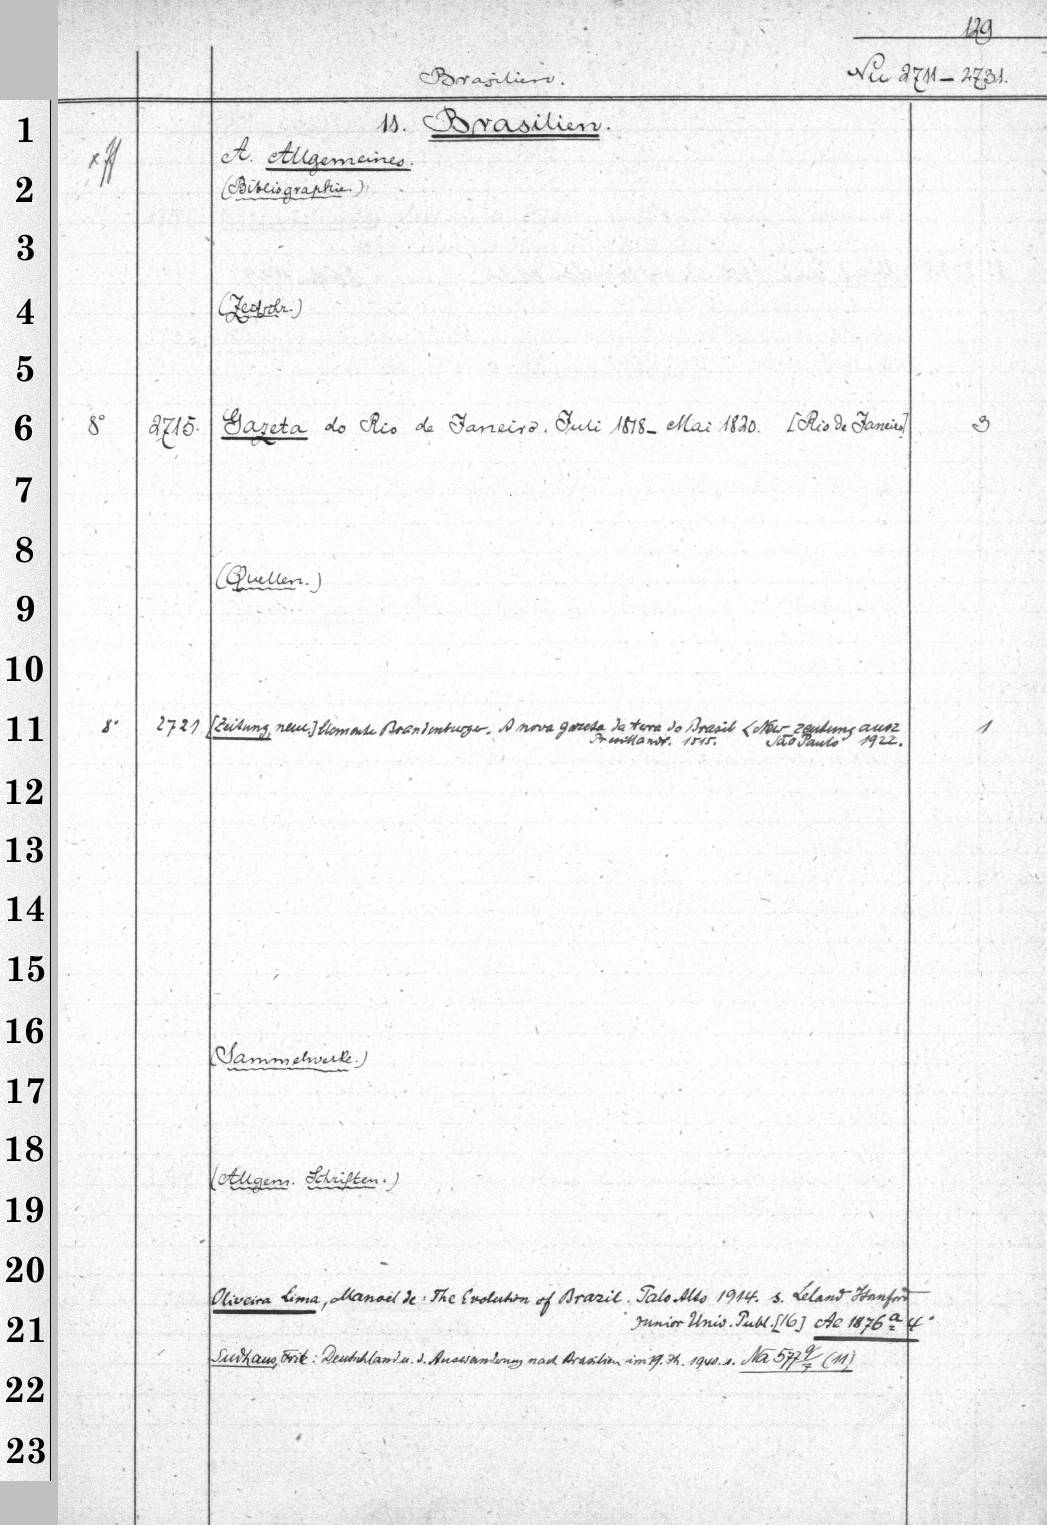 129
Brasilien. Nu 2711 – 2731.
11. Brasilien.
A. Allgemeines.
(Bibliographie.)
(Zeitschr.)
8° 2715. Gazeta do Rio de Janeiro. Juli 1818 – Mai 1820. [Rio de Janeiro] 3
(Quellen.)
8° 2721 [Zeitung, neue] Clemente Brandenburger. A nova gazeta da terra do Brasil <New zeutung ausz 1
Presillandt. 1515. São Paulo 1922.
(Sammelwerke.)
(Allgem. Schriften.)
Oliveira Lima, Manoel de: The Evolution of Brazil. Palo Alto 1914. s. Leland Stanford
Junior Univ. Publ. [16] Ac 1876 a 4°
Sudhaus, Fritz: Deutschland u. d. Auswanderung nach Brasilien im 19. Jh. 1940. s. Na 577 (11)
1
2
3
4
5
6
7
8
9
10
11
12
13
14
15
16
17
18
19
20
21
22
23